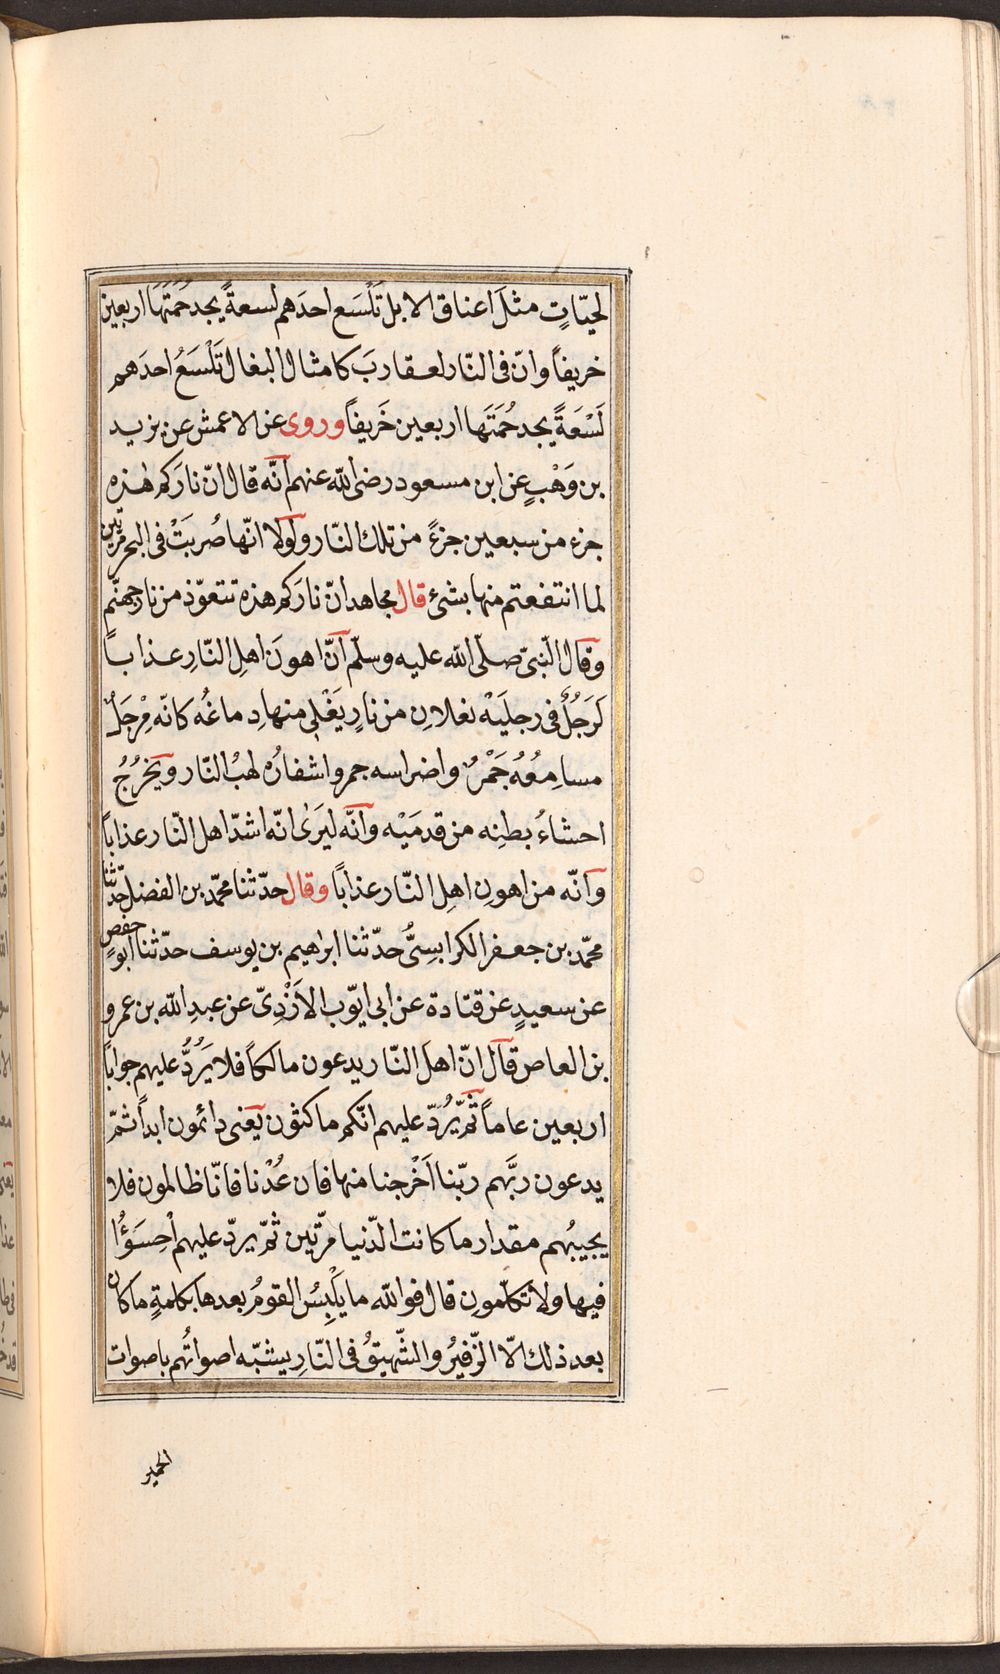 لحيّاتٍ مثلَ اعناق الابل تَلْسَع احدَهم لسعةً يجد حُمَتَهَا اربعين
خريفاً وانّ فى النّار لعقاربَ كامثال البغال تَلْسَعُ احدَهم
لَسْعَةً يجد حُمَتَها اربعين خَريفاً وروى عن الاعمش عن يزيد
بن وَهْبٍ عن ابن مسعود رضى الله عنهم انّه قال انّ نارَكم هٰذه
جزء من سبعين جزءً من تلك النّار ولولا انّها ضُربَتْ فى البحر مرّتين
لما انتفعتم منها بشئ قال مجاهد انّ نارَكم هذه تتعوّذ من نار جهنّم
وقال النّبىّ صلّى الله عليه وسلّم انّ اهونَ اهلِ النّارِ عذاباً
كَرَجُلٌ فى رجليَه نعلانِ من نارٍ يَغْلى منها دِماغُه كانّه مِرْجَلٌ
مسامِعُهُ جَمْرٌ واضراسه جمر واشفارُه لهبُ النّار ويخرُجُ
احشاءُ بطنِه من قدمَيْه وانّه ليَرىٰ انّه اشدّ اهل النّار عذاباً
وانّه من اهونِ اهلِ النّار عذاباً وقال حدّثنا محمّد بن الفضل حدّثنا
محمّد بن جعفر الكرابسىُّ حدّثنا ابراهيم بن يوسف حدّثنا ابو حفصٍ
عن سعيدٍ عن قتادة عن ابى ايّوب الأزْدِىّ عن عبدِ الله بن عمرو
بن العاص قال انّ اهلَ النّار يدعون مالكاً فلا يَرُدُّ عليهم جواباً
اربعين عاماً ثمّ يَرُدّ عليهم انّكم ماكثون يعنى دائمون ابداً ثمّ
يدعون ربَّهم ربّنا اَخْرجنا منها فان عُدْنا فانّا ظالمون فلا
يجيبُهم مقدار ما كانت الدّنيا مرّتين ثمّ يردّ عليهم اْخِسَوُا
فيها ولا تكلّمون قال فوالله ما يَلْبِسُ القومُ بعدها بكلمةٍ ما كان
بعد ذلك الّا الزّفيرُ والشّهيقُ فى النّارِ يشبّه اصواتُهم باصوات
الحمير